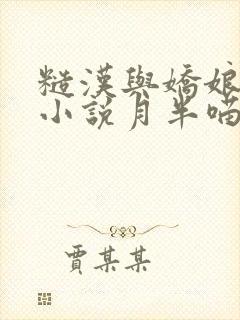 糙漢與嬌娘
小說月半喵
賈某某